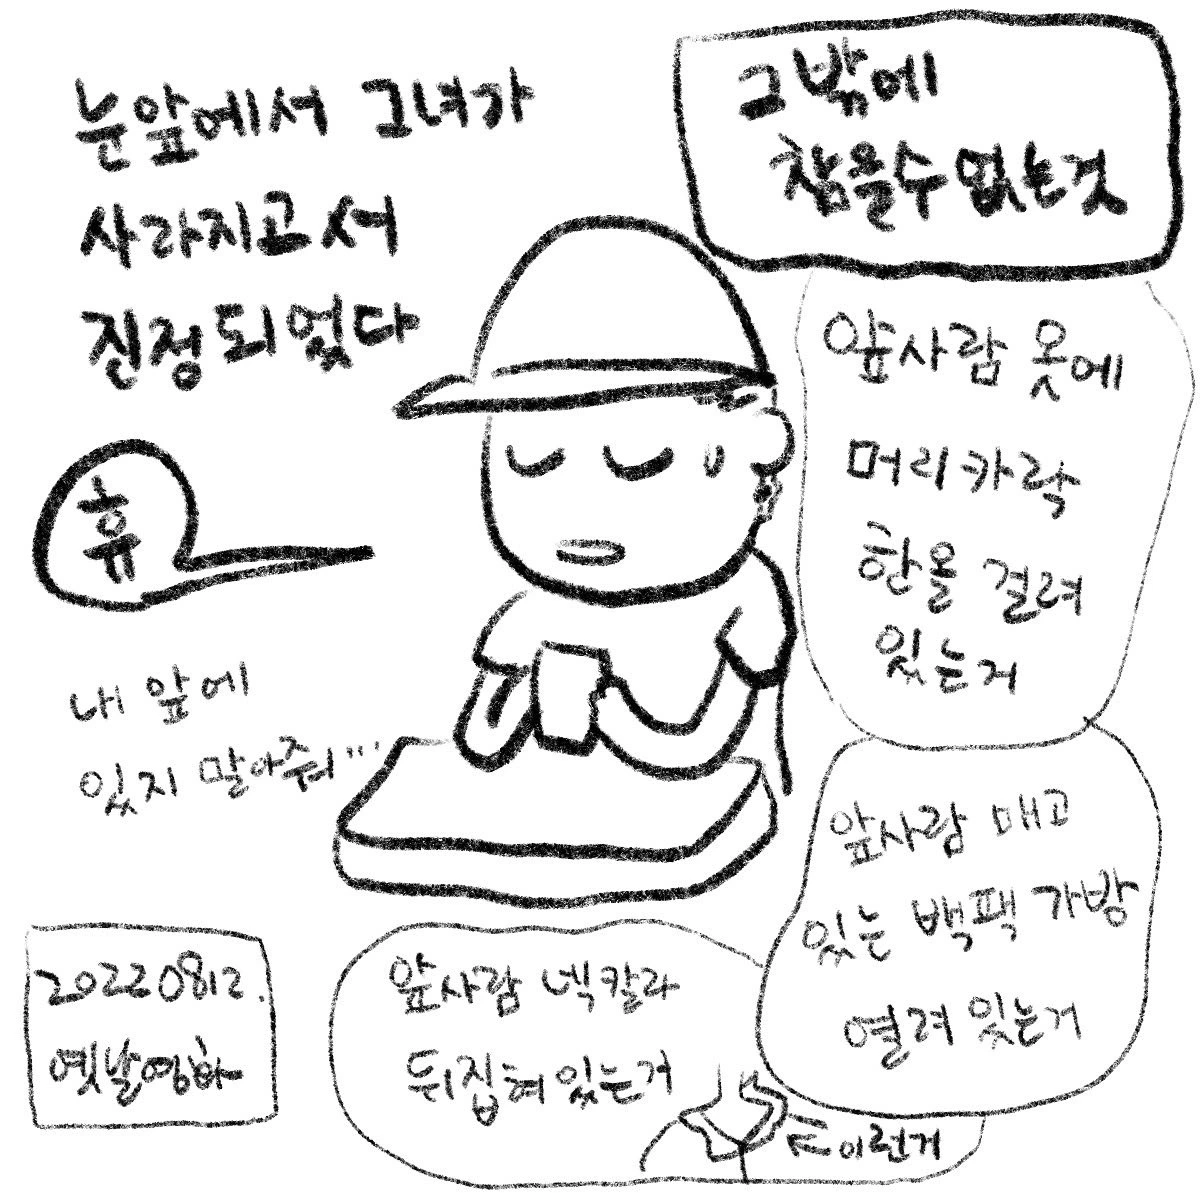 눈앞에서 그녀가
사라지고서
진정되었다
휴
내 앞에
있지 말아줘...
그 밖에
참을수 없는것
앞사람 옷에
머리카락
한올 걸려
있는거
앞사람 매고
있는 백팩 가방
열려 있는거
앞사람 넥칼라
뒤집혀 있는거
이런거
20220812.
옛날영화